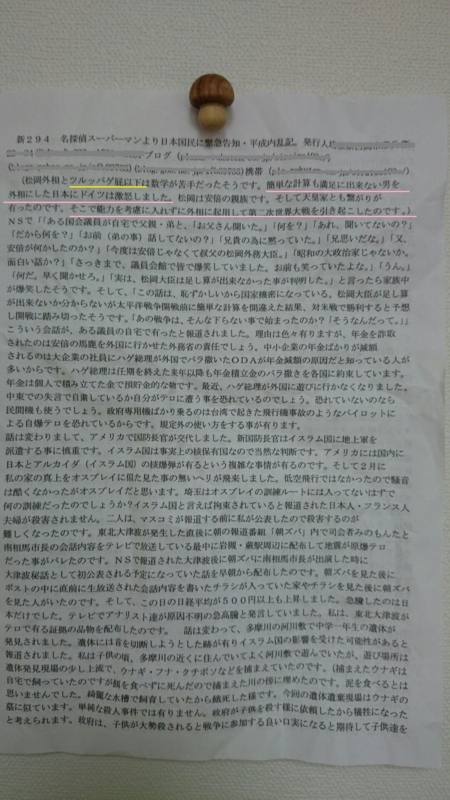 新２９４　名探偵スーパーマンより日本国民に緊急告知・平成内乱記。発行人
ブログ
携帯
（松岡外相とツルッパゲ屁以下は数学が苦手だったそうです。簡単な計算も満足に出来ない男を
外相にした日本にドイツは激怒しました。松岡は安倍の親族です。そして天皇家とも繋がりが
有ったのです。そこで能力を考慮に入れずに外相に起用して第二次世界大戦を引き起こしたのです。）
ＮＳで「「ある国会議員が自宅で父親・弟と、「お父さん聞いた。」「何を？」「あれ、聞いてないの？」
「だから何を？」「お前（弟の事）話してないの？」「兄貴の為に黙っていた。」「兄思いだな。」「又、
安倍が何かしたのか？」「今度は安倍じゃなくて叔父の松岡外務大臣。」「昭和の大政治家じゃないか。
面白い話か？」「さっきまで、議員会館で皆で爆笑していました。お前も笑っていたよな。」「うん。」
「何だ。早く聞かせろ。」「実は、松岡大臣は足し算が出来なかった事が判明した。」と言ったら家族中
が爆笑したそうです。そして、「この話は、恥ずかしいから国家機密になっている。松岡大臣が足し算
が出来ないか分からないが太平洋戦争開戦前に簡単な計算を間違えた結果、対米戦で勝利すると予想
し開戦に踏み切ったそうです。「あの戦争は、そんな下らない事で始まったのか？「そうなんだって。」」
こういう会話が、ある議員の自宅で有ったと報道されました。理由は色々有りますが、年金を詐取
されたのは安倍の馬鹿を外国に行かせた外務省の責任でしょう。中小企業の年金ばかりが減額
されるのは大企業の社員にハゲ総理が外国でバラ撒いたＯＤＡが年金減額の原因だと知っている人が
多いからです。ハゲ総理は任期を終えた来年以降も年金積立金のバラ撒きを各国に約束しています。
年金は個人で積み立てた金で預貯金的な物です。最近、ハゲ総理が外国に遊びに行かなくなりました。
中東での失言で自粛しているか自分がテロに遭う事を恐れているのでしょう。恐れていないのなら
民間機も使うでしょう。政府専用機ばかり乗るのは台湾で起きた飛行機事故のようなパイロットに
よる自爆テロを恐れているからです。規定外の使い方をする事が有ります。
話は変わりまして、アメリカで国防長官が交代しました。新国防長官はイスラム国に地上軍を
派遣する事に慎重です。イスラム国は事実上の核保有国なので当然な判断です。アメリカには国内に
日本とアルカイダ（イスラム国）の核爆弾が有るという複雑な事情が有るのです。そして２月に
私の家の真上をオスプレイに似た見た事の無いヘリが飛来しました。低空飛行ではなかったので騒音
は酷くなかったがオスプレイだと思います。埼玉はオスプレイの訓練ルートには入ってないはずで
何の訓練だったのでしょうか？イスラム国と言えば拘束されていると報道された日本人・フランス人
夫婦が殺害されません。二人は、マスコミが報道する前に私が公表したので殺害するのが
難しくなったのです。東北大津波が発生した直後に朝の報道番組「朝ズバ」内で司会者みのもんたと
南相馬市長の会話内容をテレビで放送している最中に岩槻・蕨駅周辺に配布して地震が原爆テロ
だった事がバレたのです。ＮＳで報道された大津波後に朝ズバに南相馬市長が出演した時に
大津波秘話として初公表される予定になっていた話を早朝から配布したのです。朝ズバを見た後に
ポストの中に直前に生放送された会話内容を書いたチラシが入っていた家やチラシを見た後に朝ズバ
を見た人がいたのです。そして、この日の日経平均が５００円以上も上昇しました。急騰したのは日
本だけでした。テレビでアナリスト達が原因不明の急高騰と発言していました。私は、東北大津波が
テロで有る証拠の品物を配布したのです。　　話は変わって、多摩川の河川敷で中学一年生の遺体が
発見されました。遺体には首を切断しようとした跡が有りイスラム国の影響を受けた可能性があると
報道されました。私は子供の頃、多摩川の近くに住んでいてよく河川敷で遊んでいたが、遊び場所は
遺体発見現場の少し上流で、ウナギ・フナ・タチボソなどを捕まえていたのです。（捕まえたウナギは
自宅で飼っていたのですが餌を食べずに死んだので捕まえた川の傍に埋めたのです。泥を食べるとは
思いませんでした。綺麗な水槽で飼育していたから餓死した様です。今回の遺体遺棄現場はウナギの
墓に似ています。単純な殺人事件では有りません。政府が子供を殺す様に依頼したから犠牲になった
と考えられます。政府は、子供が大勢殺されると戦争に参加する良い口実になると期待して子供達を